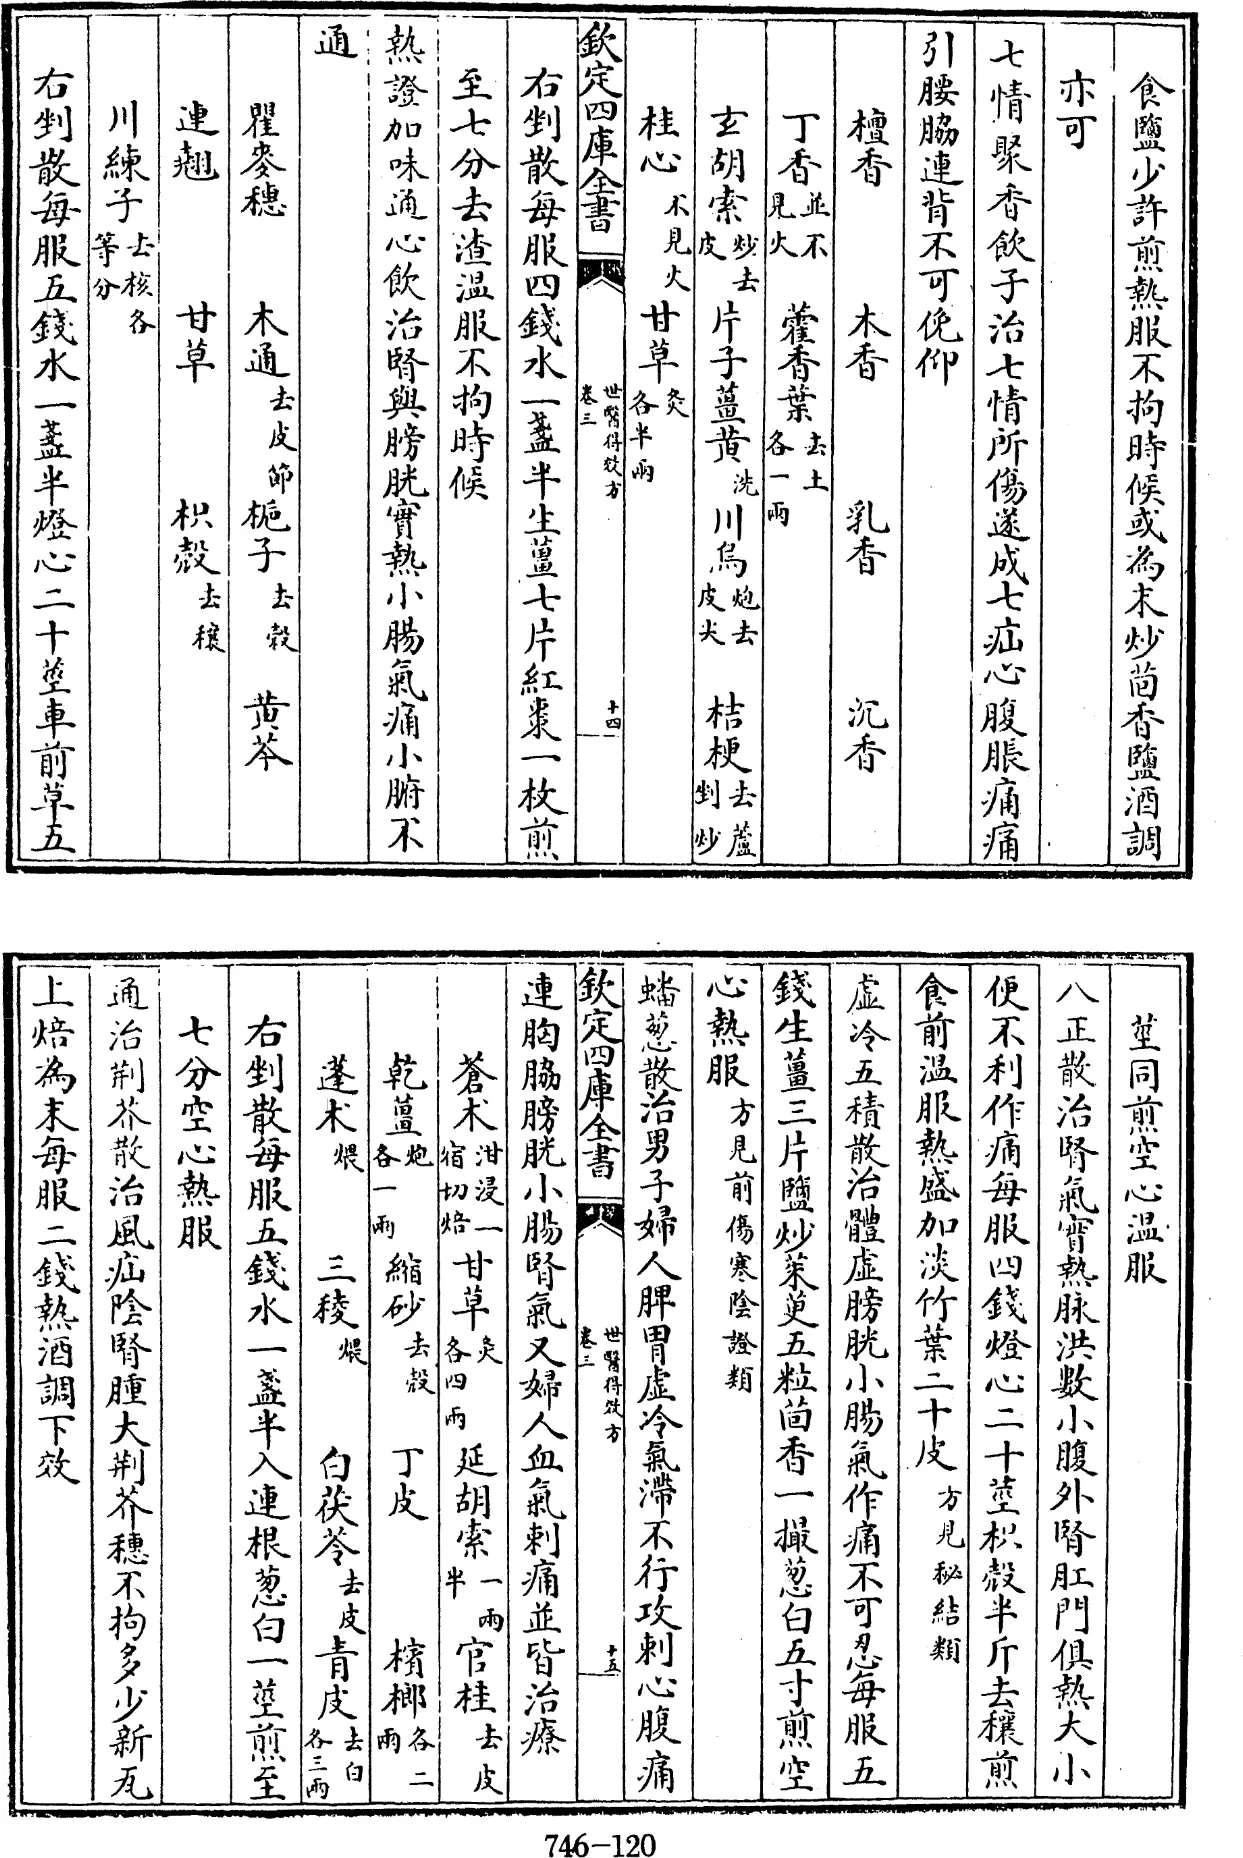 食鹽少許煎熱服不拘時候或為末炒茴香鹽酒調
亦可
七情聚香飲子治七情所傷遂成七疝心腹脹痛痛
引腰脇連背不可俛仰
檀香 木香 乳香 沉香
丁香並不見火 藿香葉去土各一兩
玄胡索炒去皮 片子薑黃洗 川烏炮去皮尖 桔梗去蘆剉炒
桂心不見火 甘草炙各半兩
欽定四庫全書 世醫得效方 卷三 十四
右剉散每服四錢水一盞半生薑七片紅棗一枚煎
至七分去渣溫服不拘時候
熱證加味通心飲治腎與膀胱實熱小腸氣痛小腑不
通
瞿麥穗 木通去皮節 梔子去殼 黃芩
連翹 甘草 枳殼去穰
川練子去核各等分
右剉散每服五錢水一盞半燈心二十莖車前草五
莖同煎空心溫服
八正散治腎氣實熱脉洪數小腹外腎肛門俱熱大小
便不利作痛每服四錢燈心二十莖枳殼半斤去穰煎
食前溫服熱盛加淡竹葉二十皮方見秘結類
虛冷五積散治體虛膀胱小腸氣作痛不可忍每服五
錢生薑三片鹽炒茱萸五粒茴香一撮葱白五寸煎空
心熱服方見前傷寒陰證類
蟠葱散治男子婦人脾胃虛冷氣滯不行攻刺心腹痛
欽定四庫全書 世醫得效方 卷三 十五
連胸脇膀胱小腸腎氣又婦人血氣刺痛並皆治療
蒼术泔浸一宿切焙 甘草炙各四兩 延胡索一兩半 官桂去皮
乾薑炮各一兩 縮砂去殼 丁皮 檳榔各二兩
蓬术煨 三稜煨 白茯苓去皮 青皮去白各三兩
右剉散每服五錢水一盞半入連根葱白一莖煎至
七分空心熱服
通治荆芥散治風疝陰腎腫大荆芥穗不拘多少新瓦
上焙為末每服二錢熱酒調下效
746-120